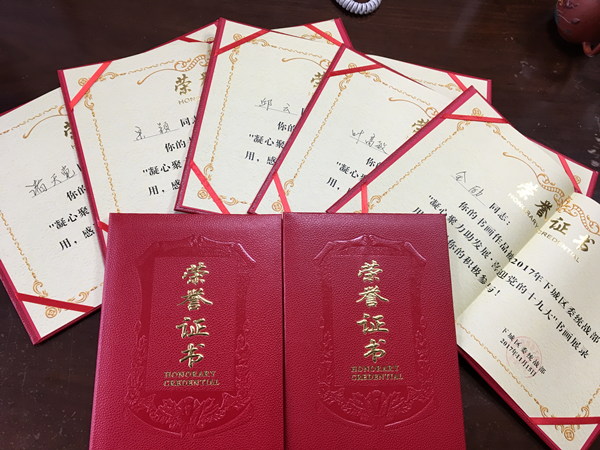 你的
“凝心聚
用，感
荣
同志
你的
“凝心聚
用，感
荣
邱云 同
你的
“凝心聚
用，感
荣
同
你的
“凝心聚
用，感
荣誉证书
同志：
你的书画作品
2017年下城区委统战部
凝心聚力助发展 喜迎党的十九大”书画展录
你的积极参与！
下城区委统战部
荣誉证书
HONORARY
CREDENTIAL
荣誉证书
HONORARY
CREDENTIAL